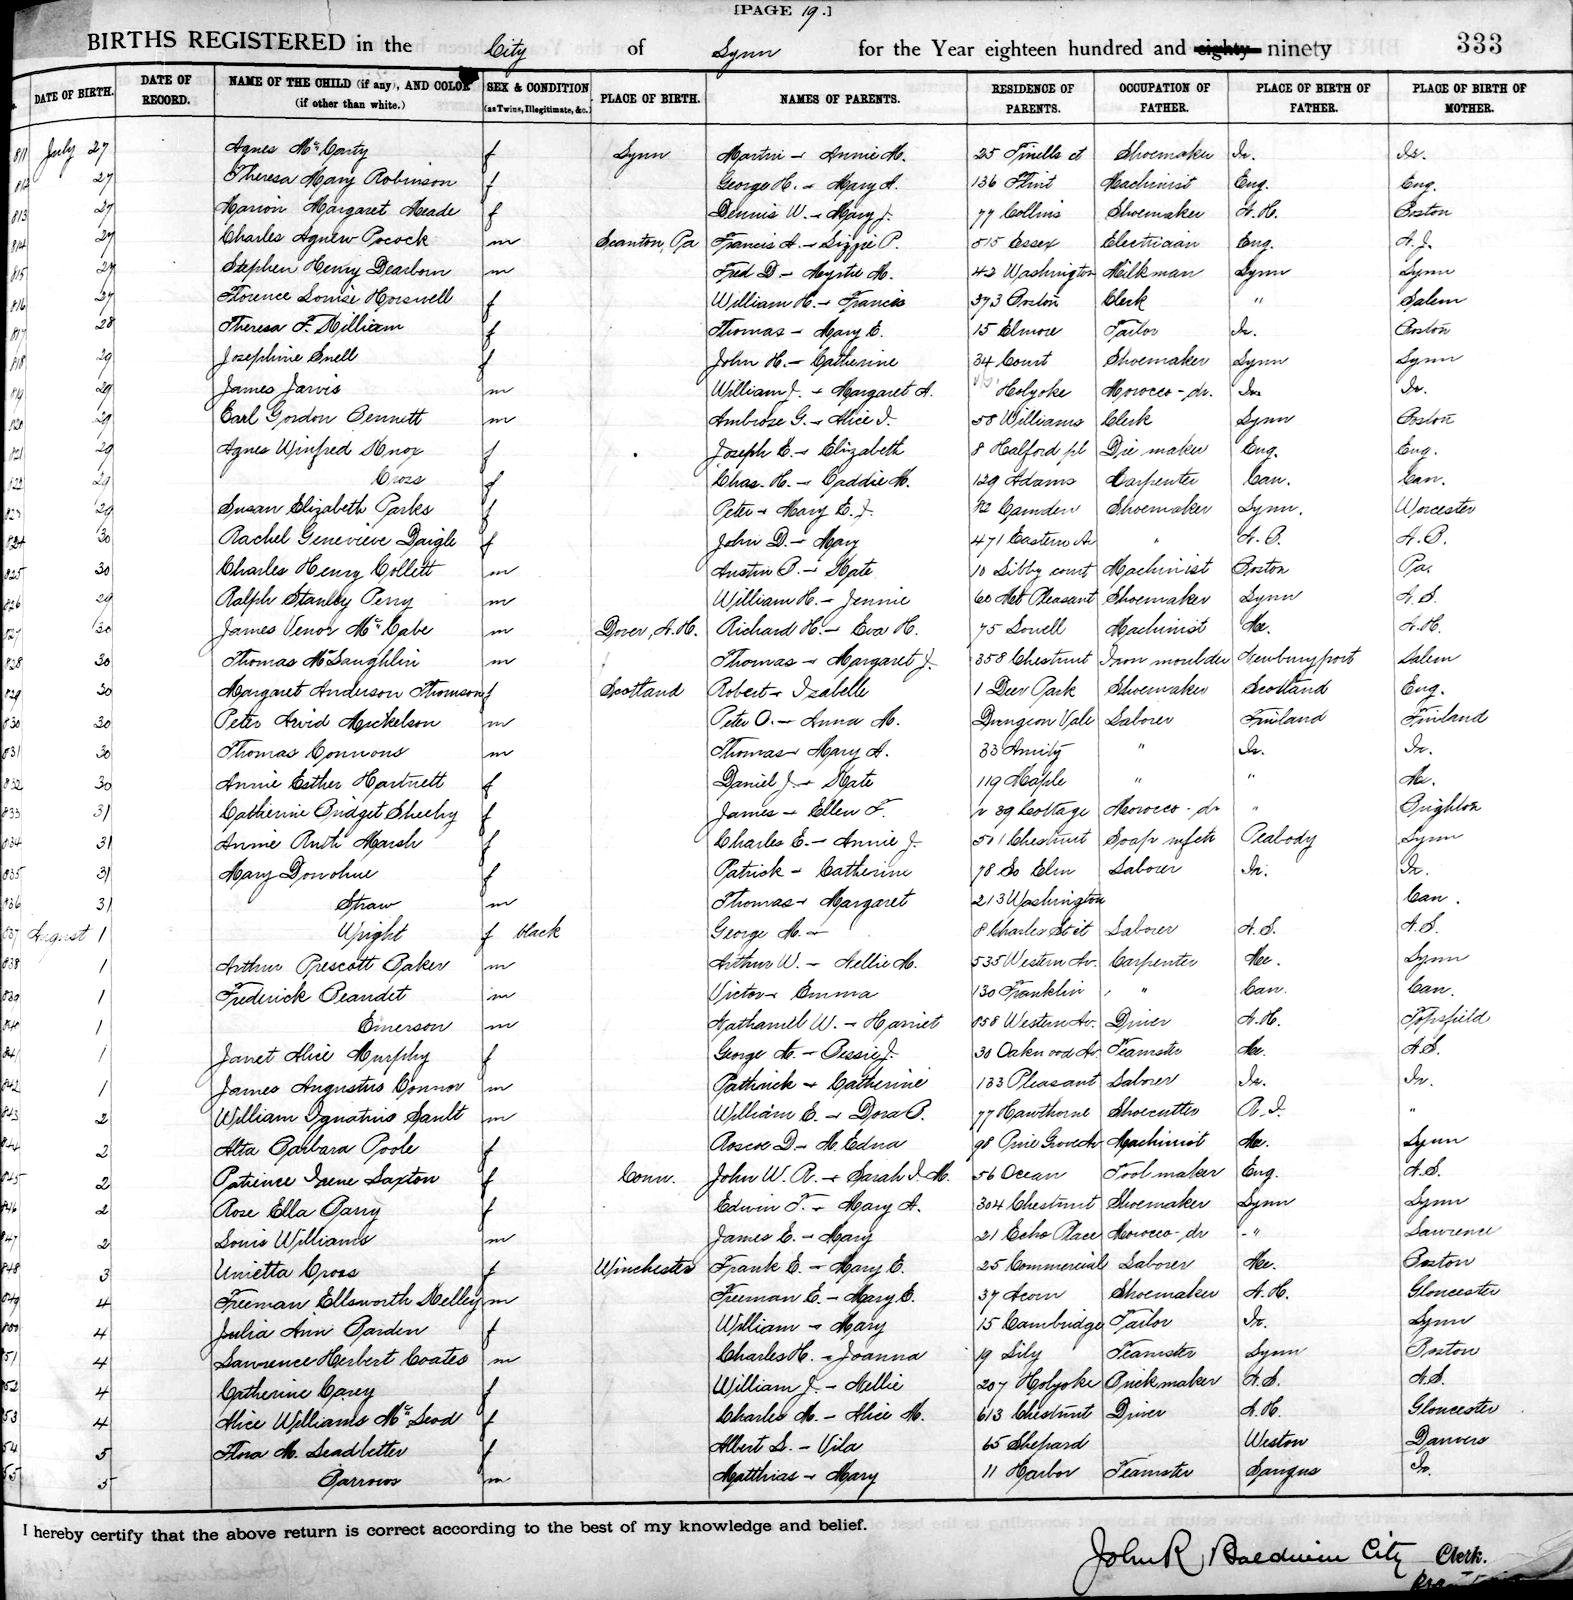 [PAGE 19.]
BIRTHS REGISTERED in the City of Lynn for the Year eighteen hundred and eighty ninety 333
DATE OF BIRTH. DATE OF RECORD. NAME OF THE CHILD (if any), AND COLOR (if other than white.) SEX & CONDITION (as Twins, Illegitimate, &c.) PLACE OF BIRTH. NAMES OF PARENTS. RESIDENCE OF PARENTS. OCCUPATION OF FATHER. PLACE OF BIRTH OF FATHER. PLACE OF BIRTH OF MOTHER.
811 July 27 Agnes McCarty f Lynn Martin - Annie M. 25 st Shoemaker Ir. Ir.
812 27 Theresa Mary Robinson f George H. - Mary A. 136 Flint Machinist Eng. Eng.
813 27 Marion Margaret Meade f Dennis W. - Mary J. 77 Collins Shoemaker N.H. Boston
814 27 Charles Agnew Pocock m Scanton, Pa Francis A. - Lizzie P. 515 Essex Electrician Eng. N.J.
815 27 Stephen Henry Dearborn m Fred D - Myrtie M. 42 Washington Milkman Lynn Lynn
816 27 Florence Louise Horswell f William H. - Francis 373 Boston Clerk " Salem
817 28 Theresa F. Killiam f Thomas - Mary E. 15 Elmore Tailor Ir. Boston
818 29 Josephine Snell f John H. - Catherine 34 Court Shoemaker Lynn Lynn
819 29 James Jarvis m William J. - Margaret A. Holyoke Morocco-dr. Ir. Ir.
820 29 Earl Gordon Bennett m Ambrose G. - Alice I. 58 Williams Clerk Lynn Boston
821 29 Agnes Winfred Knox f Joseph E. - Elizabeth 8 Halford pl Die maker Eng. Eng.
822 29 Cross f Chas. H. - Caddie M. 129 Adams Carpenter Can. Can.
823 29 Susan Elizabeth Parks f Peter - Mary E. J. 82 Camden Shoemaker Lynn. Worcester
824 30 Rachel Genevieve Daigle f John D. - Mary 471 Eastern Av " N.B. N.B.
825 30 Charles Henry Collett m Austin P. - Kate 10 Libby court Machinist Boston Pa.
826 29 Ralph Stanley Perry m William H. - Jennie 60 Mt Pleasant Shoemaker Lynn N.S.
827 30 James Venor McCabe m Dover, N.H. Richard H. - Eva H. 75 Lowell Machinist Me. N.H.
828 30 Thomas McLaughlin m Thomas - Margaret J. 358 Chestnut Iron moulder Newburyport Salem
829 30 Margaret Anderson Thomson f Scotland Robert - Izabelle 1 Deer Park Shoemaker Scotland Eng.
830 30 Peter Arvid Mickelson m Peter O. - Anna M. Dungeon Vale Laborer Finland Finland
831 30 Thomas Connons m Thomas - Mary A. 33 Amity " Ir. Ir.
832 30 Annie Esther Hartnett f Daniel J. - Kate 119 Maple " " Me.
833 31 Catherine Bridget Sheehy f James - Ellen F. r 39 Cottage Morocco-dr " Brighton
834 31 Annie Ruth Marsh f Charles E. - Annie J. 501 Chestnut Soap mfctr Peabody Lynn
835 31 Mary Donohue f Patrick - Catherine 78 So Elm Laborer Ir. Ir.
836 31 Straw m Thomas - Margaret 213 Washington Can.
837 August 1 Wright f black George M. - 8 Charles St ct Laborer N.S. N.S.
838 1 Arthur Prescott Baker m Arthur W. - Nellie M. 535 Western Av. Carpenter Me. Lynn
839 1 Frederick Beandet m Victor - Emma 130 Franklin " Can. Can.
840 1 Emerson m Nathaniel W. - Harriet 858 Western Av. Driver N.H. Topsfield
841 1 Janet Alice Murphy f George M. - Bessie J. 30 Oakwood Av Teamster Me. N.S.
842 1 James Augustus Connor m Pathrick - Catherine 133 Pleasant Laborer Ir. Ir.
843 2 William Ignatius Sault m William E. - Dora B. 77 Hawthorne Shoecutter R.I. "
844 2 Alta Barbara Poole f Roscoe D - M. Edna 98 Pine Grove Av Machinist Me. Lynn
845 2 Patience Irene Saxton f Conn. John W. R. - Sarah I. M. 56 Ocean Tool maker Eng. N.S.
846 2 Rose Ella Barry f Edwin F. - Mary A. 304 Chestnut Shoemaker Lynn Lynn
847 2 Louis Williams m James E. - Mary 21 Echo Place Morocco-dr " Lawrence
848 3 Unietta Cross f Winchester Frank E. - Mary E. 25 Commercial Laborer Me. Boston
849 4 Freeman Ellsworth Kelley m Freeman E. - Mary E. 37 Acorn Shoemaker N.H. Gloucester
850 4 Julia Ann Barden f William - Mary 15 Cambridge Tailor Ir. Lynn
851 4 Lawrence Herbert Coates m Charles H. - Joanna 19 Lily Teamster Lynn Boston
852 4 Catherine Carey f William J. - Nellie 207 Holyoke Brickmaker N.S. N.S.
853 4 Alice Williams McLeod f Charles M. - Alice M. 613 Chestnut Driver N.H. Gloucester
854 5 Flora M. Leadbetter f Albert L. - Vila 65 Shepard Weston Danvers
855 5 Barrows m Matthias - Mary 11 Harbor Teamster Saugus Ir.
I hereby certify that the above return is correct according to the best of my knowledge and belief.
John R Baldwin City Clerk.